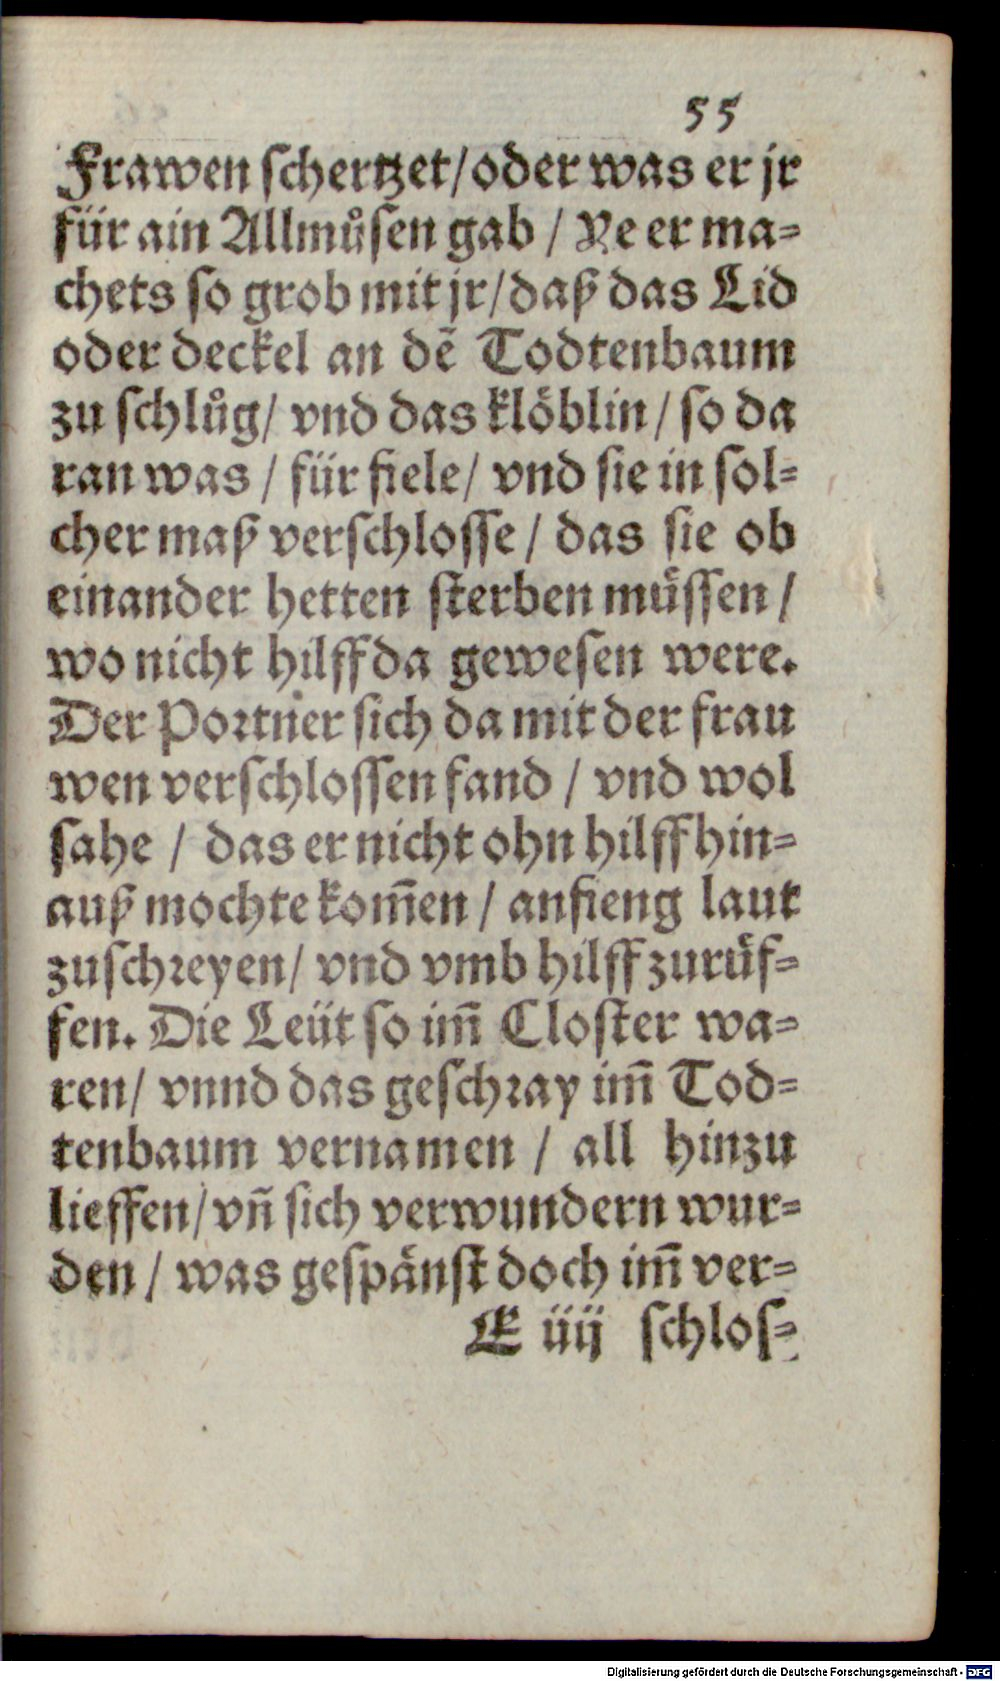 55
Frawen schertzet/ oder was er jr
für ain Allmůsen gab / Ye er ma⸗
chets so grob mit jr/ daß das Lid
oder deckel an dē Todtenbaum
zu schlůg/ vnd das klöblin / so da
ran was / für fiele/ vnd sie in sol⸗
cher maß verschlosse / das sie ob
einander hetten sterben müssen /
wo nicht hilff da gewesen were.
Der Portner sich da mit der frau
wen verschlossen fand / vnd wol
sahe / das er nicht ohn hilff hin⸗
auß mochte kom̄en / anfieng laut
zuschreyen/ vnd vmb hilff zurüf⸗
fen. Die Leüt so im̄ Closter wa⸗
ren/ vnnd das geschray im̄ Tod⸗
tenbaum vernamen / all hinzu
lieffen/ vn̄ sich verwundern wur⸗
den / was gespänst doch im̄ ver⸗
E iiij schlos⸗
Digitalisierung gefördert durch die Deutsche Forschungsgemeinschaft - DFG